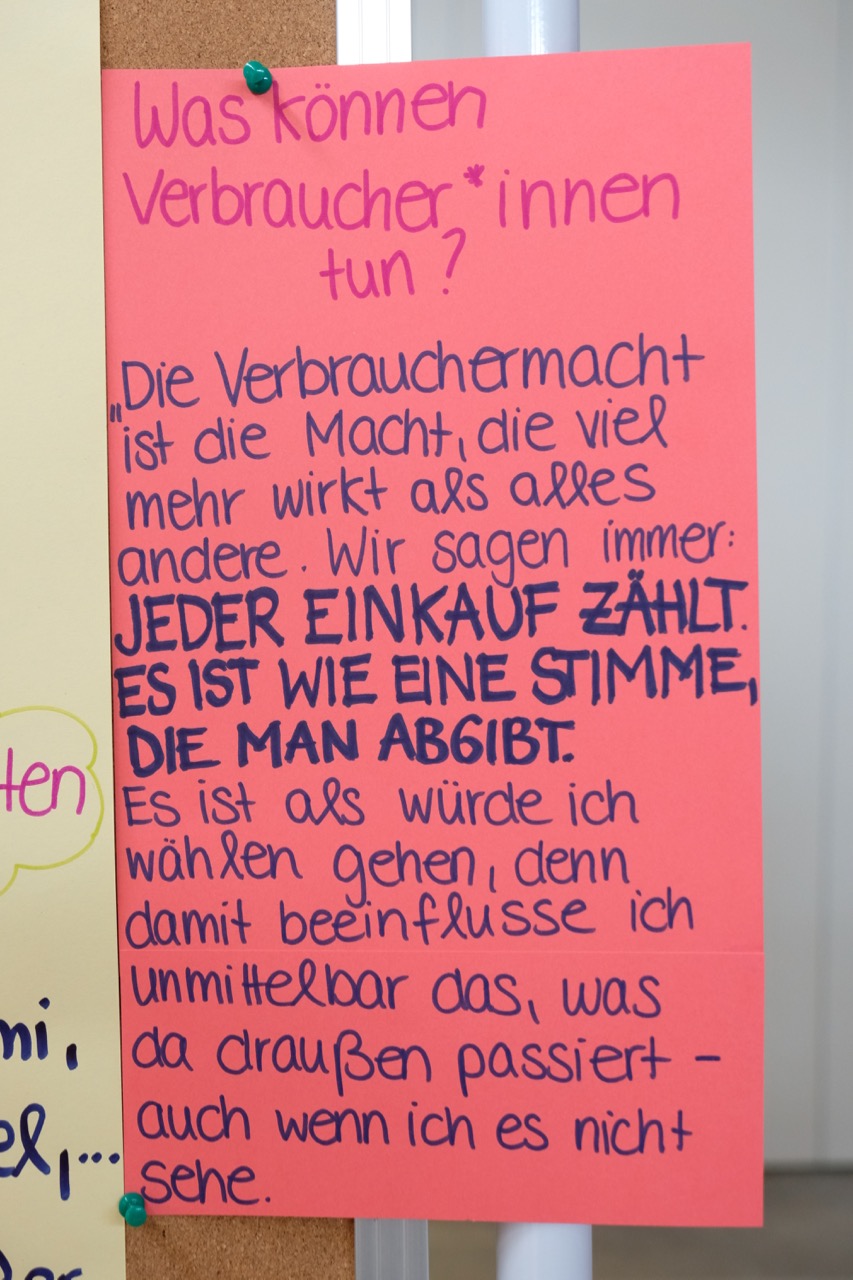 Was können
Verbraucher*innen
tun?
„Die Verbrauchermacht
ist die Macht, die viel
mehr wirkt als alles
andere. Wir sagen immer:
JEDER EINKAUF ZÄHLT.
ES IST WIE EINE STIMME,
DIE MAN ABGIBT.
Es ist als würde ich
wählen gehen, denn
damit beeinflusse ich
unmittelbar das, was
da draußen passiert –
auch wenn ich es nicht
sehe.